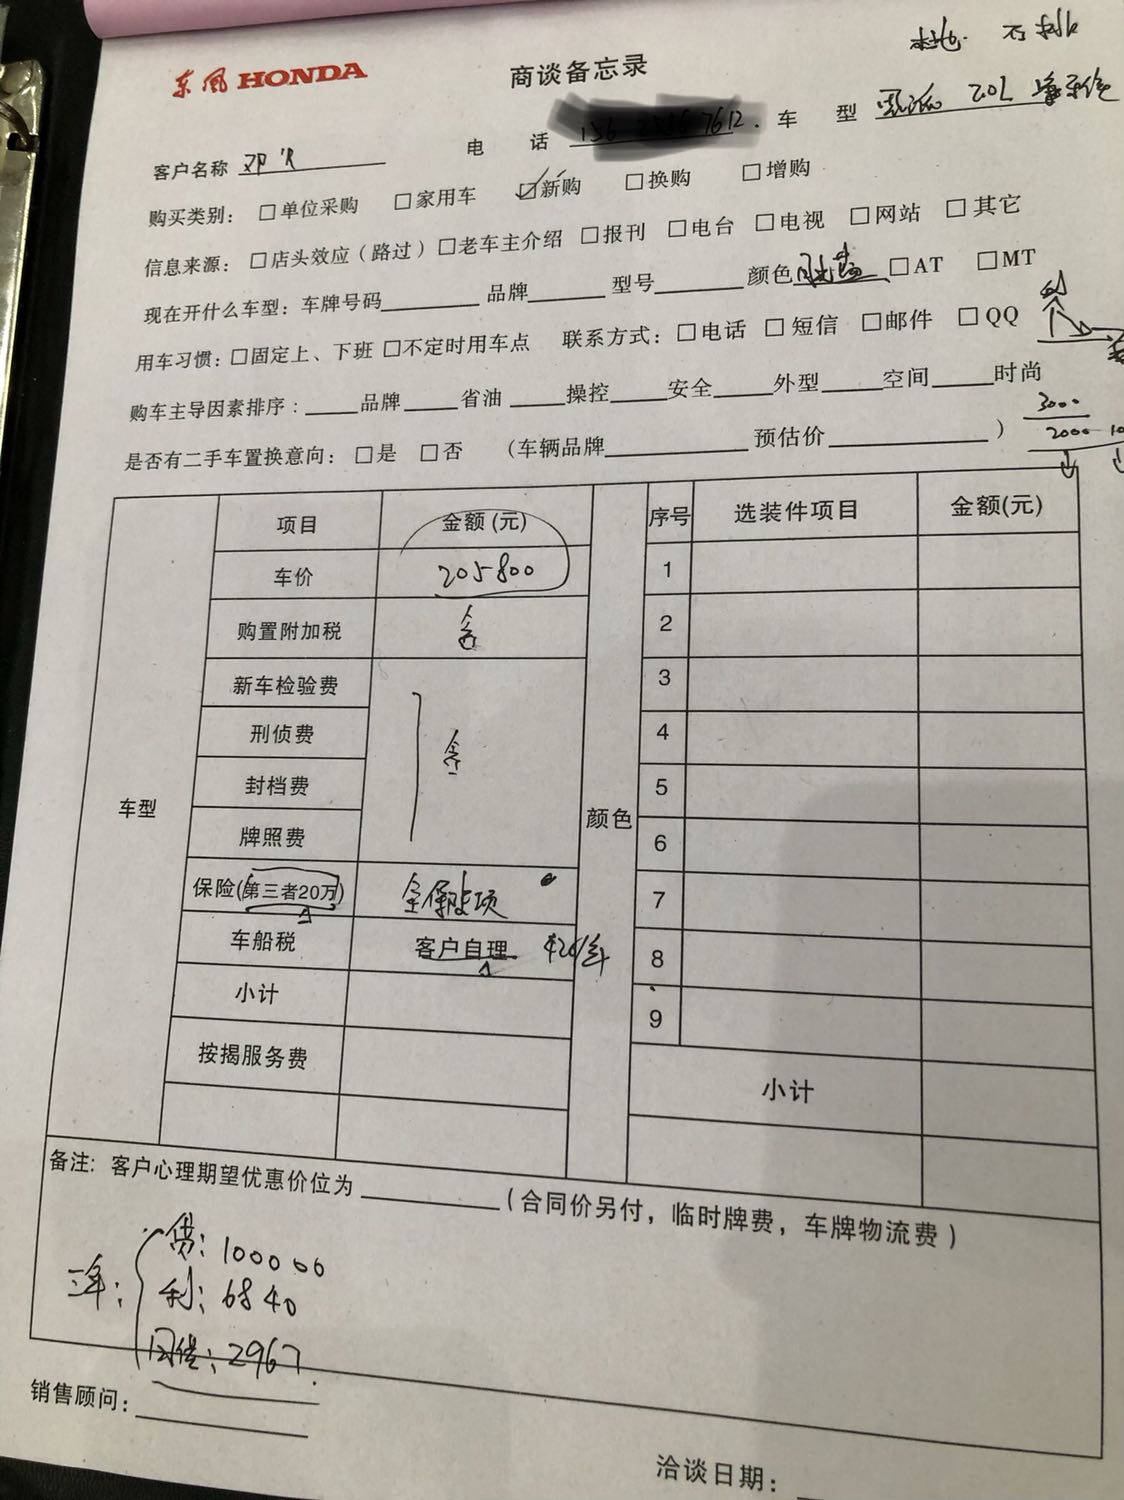 东风HONDA
商谈备忘录
客户名称 电话 车型 2.0L
购买类别: □单位采购 □家用车 ☑新购 □换购 □增购
信息来源: □店头效应（路过）□老车主介绍 □报刊 □电台 □电视 □网站 □其它
现在开什么车型: 车牌号码 品牌 型号 颜色 □AT □MT
用车习惯: □固定上、下班 □不定时用车点 联系方式: □电话 □短信 □邮件 □QQ
购车主导因素排序: 品牌 省油 操控 安全 外型 空间 时尚
3000
2000
是否有二手车置换意向: □是 □否 （车辆品牌 预估价 ）
项目 金额(元) 序号 选装件项目 金额(元)
车价 205800 1
购置附加税 含 2
新车检验费 3
刑侦费 含 4
封档费 5
牌照费 6
车型 颜色
保险(第三者20万) 全保 7
车船税 客户自理 420/年 8
小计 9
按揭服务费
小计
备注: 客户心理期望优惠价位为 （合同价另付，临时牌费，车牌物流费）
三年: 贷: 100000
利: 6840
月供: 2967
销售顾问:
洽谈日期: